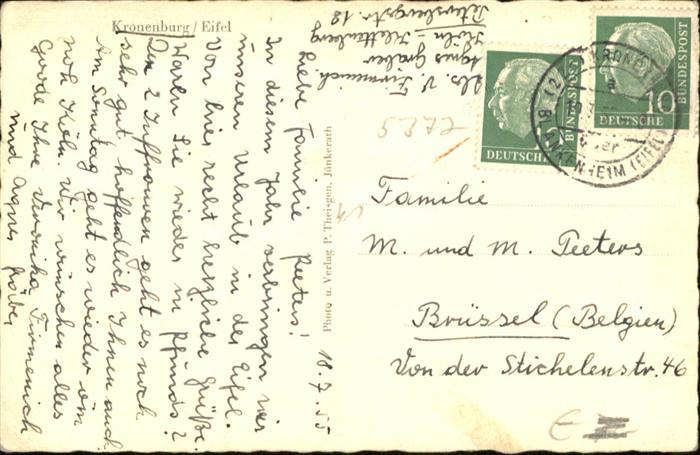 Kronenburg / Eifel
18.7.55
Liebe Familie Peeters!
In diesem Jahr verbringen wir
unseren Urlaub in der Eifel.
Von hier recht herzliche Grüße.
Waren Sie wieder in Pfunds?
Den 2 Tiffrauen geht es noch
sehr gut, hoffendlich Ihnen auch
Am Sonntag geht es wieder
nach Köln. Wir wünschen alles
Gute Ihre Veronika Firmenich
und Agnes Gräber
Abs. V. Firmenich
Agnes Gräber
Köln Klettenberg
Petersbergstr. 18
Photo u. Verlag P. Theisgen, Jünkerath
5372
DEUTSCHE BUNDESPOST
10
DEUTSCHE BUNDESPOST
BLANKENHEIM (EIFEL)
Familie
M. und M. Peeters
Brüssel (Belgien)
Von der Stichelenstr. 46